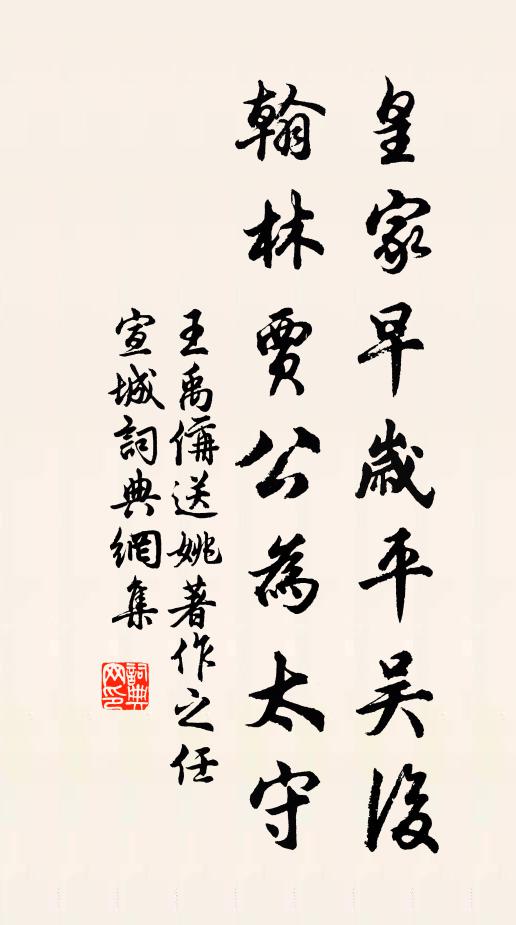 皇家早歲平吳後
翰林賈公為太守
王禹偁送姚著作之任
宣城詞典網集
詞典網印